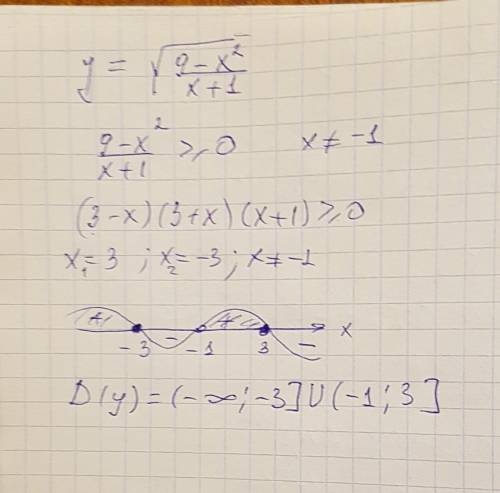 y = √((9-x²)/(x+1))
(9-x²)/(x+1) ⩾ 0 x ≠ -1
(3-x)(3+x)(x+1) ⩾ 0
x₁ = 3 ; x₂ = -3 ; x ≠ -1
+ - + - x
-3 -1 3
D(y) = (-∞; -3] U (-1; 3]